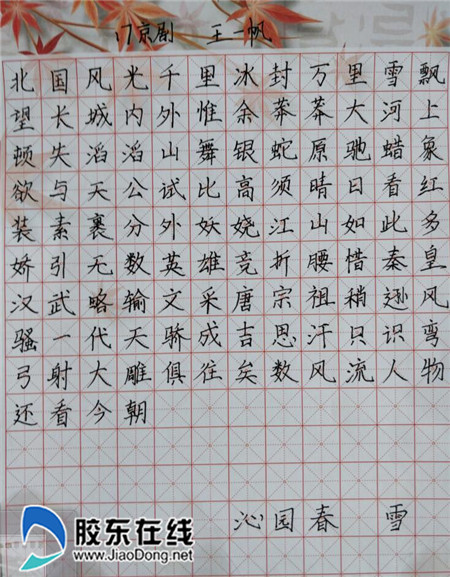 17京剧 王一帆
北国风光千里冰封万里雪飘
望长城内外惟余莽莽大河上
顿失滔滔山舞银蛇原驰蜡象
欲与天公试比高须晴日看红
装素裹分外妖娆江山如此多
娇引无数英雄竞折腰惜秦皇
汉武略输文采唐宗祖稍逊风
骚一代天骄成吉思汗只识弯
弓射大雕俱往矣数风流人物
还看今朝
沁园春 雪
胶东在线
www.JiaoDong.net